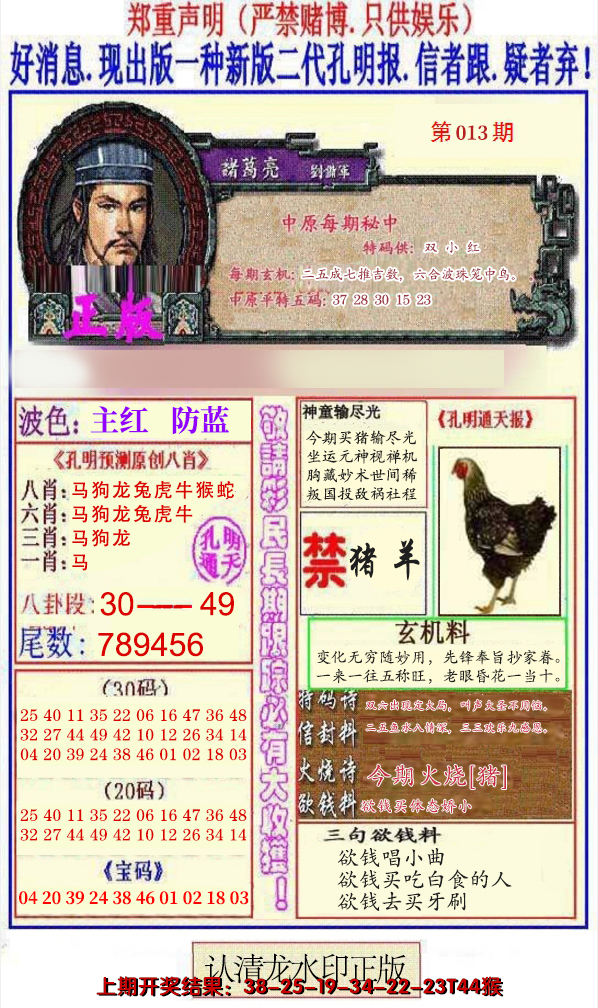 郑重声明（严禁赌博.只供娱乐）
好消息.现出版一种新版二代孔明报.信者跟.疑者弃!
第013期
諸葛亮 劉備軍
中原每期秘中
特码供: 双小红
每期玄机: 二五成七推吉数，六合波珠笼中鸟。
中原平特五码: 37 28 30 15 23
正版
波色: 主红 防蓝
《孔明预测原创八肖》
八肖: 马狗龙兔虎牛猴蛇
六肖: 马狗龙兔虎牛
三肖: 马狗龙
一肖: 马
孔明
通天
八卦段: 30——49
尾数: 789456
(30码)
25 40 11 35 22 06 16 47 36 48
32 27 44 49 42 10 12 26 34 14
04 20 39 24 38 46 01 02 18 03
(20码)
25 40 11 35 22 06 16 47 36 48
32 27 44 49 42 10 12 26 34 14
《宝码》
04 20 39 24 38 46 01 02 18 03
敬請彩民長期跟踪必有大收獲!
神童输尽光
今期买猪输尽光
坐运元神视禅机
胸藏妙术世间稀
叛国投敌祸社程
《孔明通天报》
禁 猪 羊
玄机料
变化无穷随妙用，先锋奉旨抄家眷。
一来一往五称旺，老眼昏花一当十。
特码诗 双六出现定大局，叫声大圣不用恼。
信封料 二五鱼水入情深，三三欢乐九感恩。
火烧诗 今期火烧[猪]
欲钱料 欲钱买体态娇小
三句欲钱料
欲钱唱小曲
欲钱买吃白食的人
欲钱去买牙刷
认清龙水印正版
上期开奖结果: 38-25-19-34-22-23T44猴